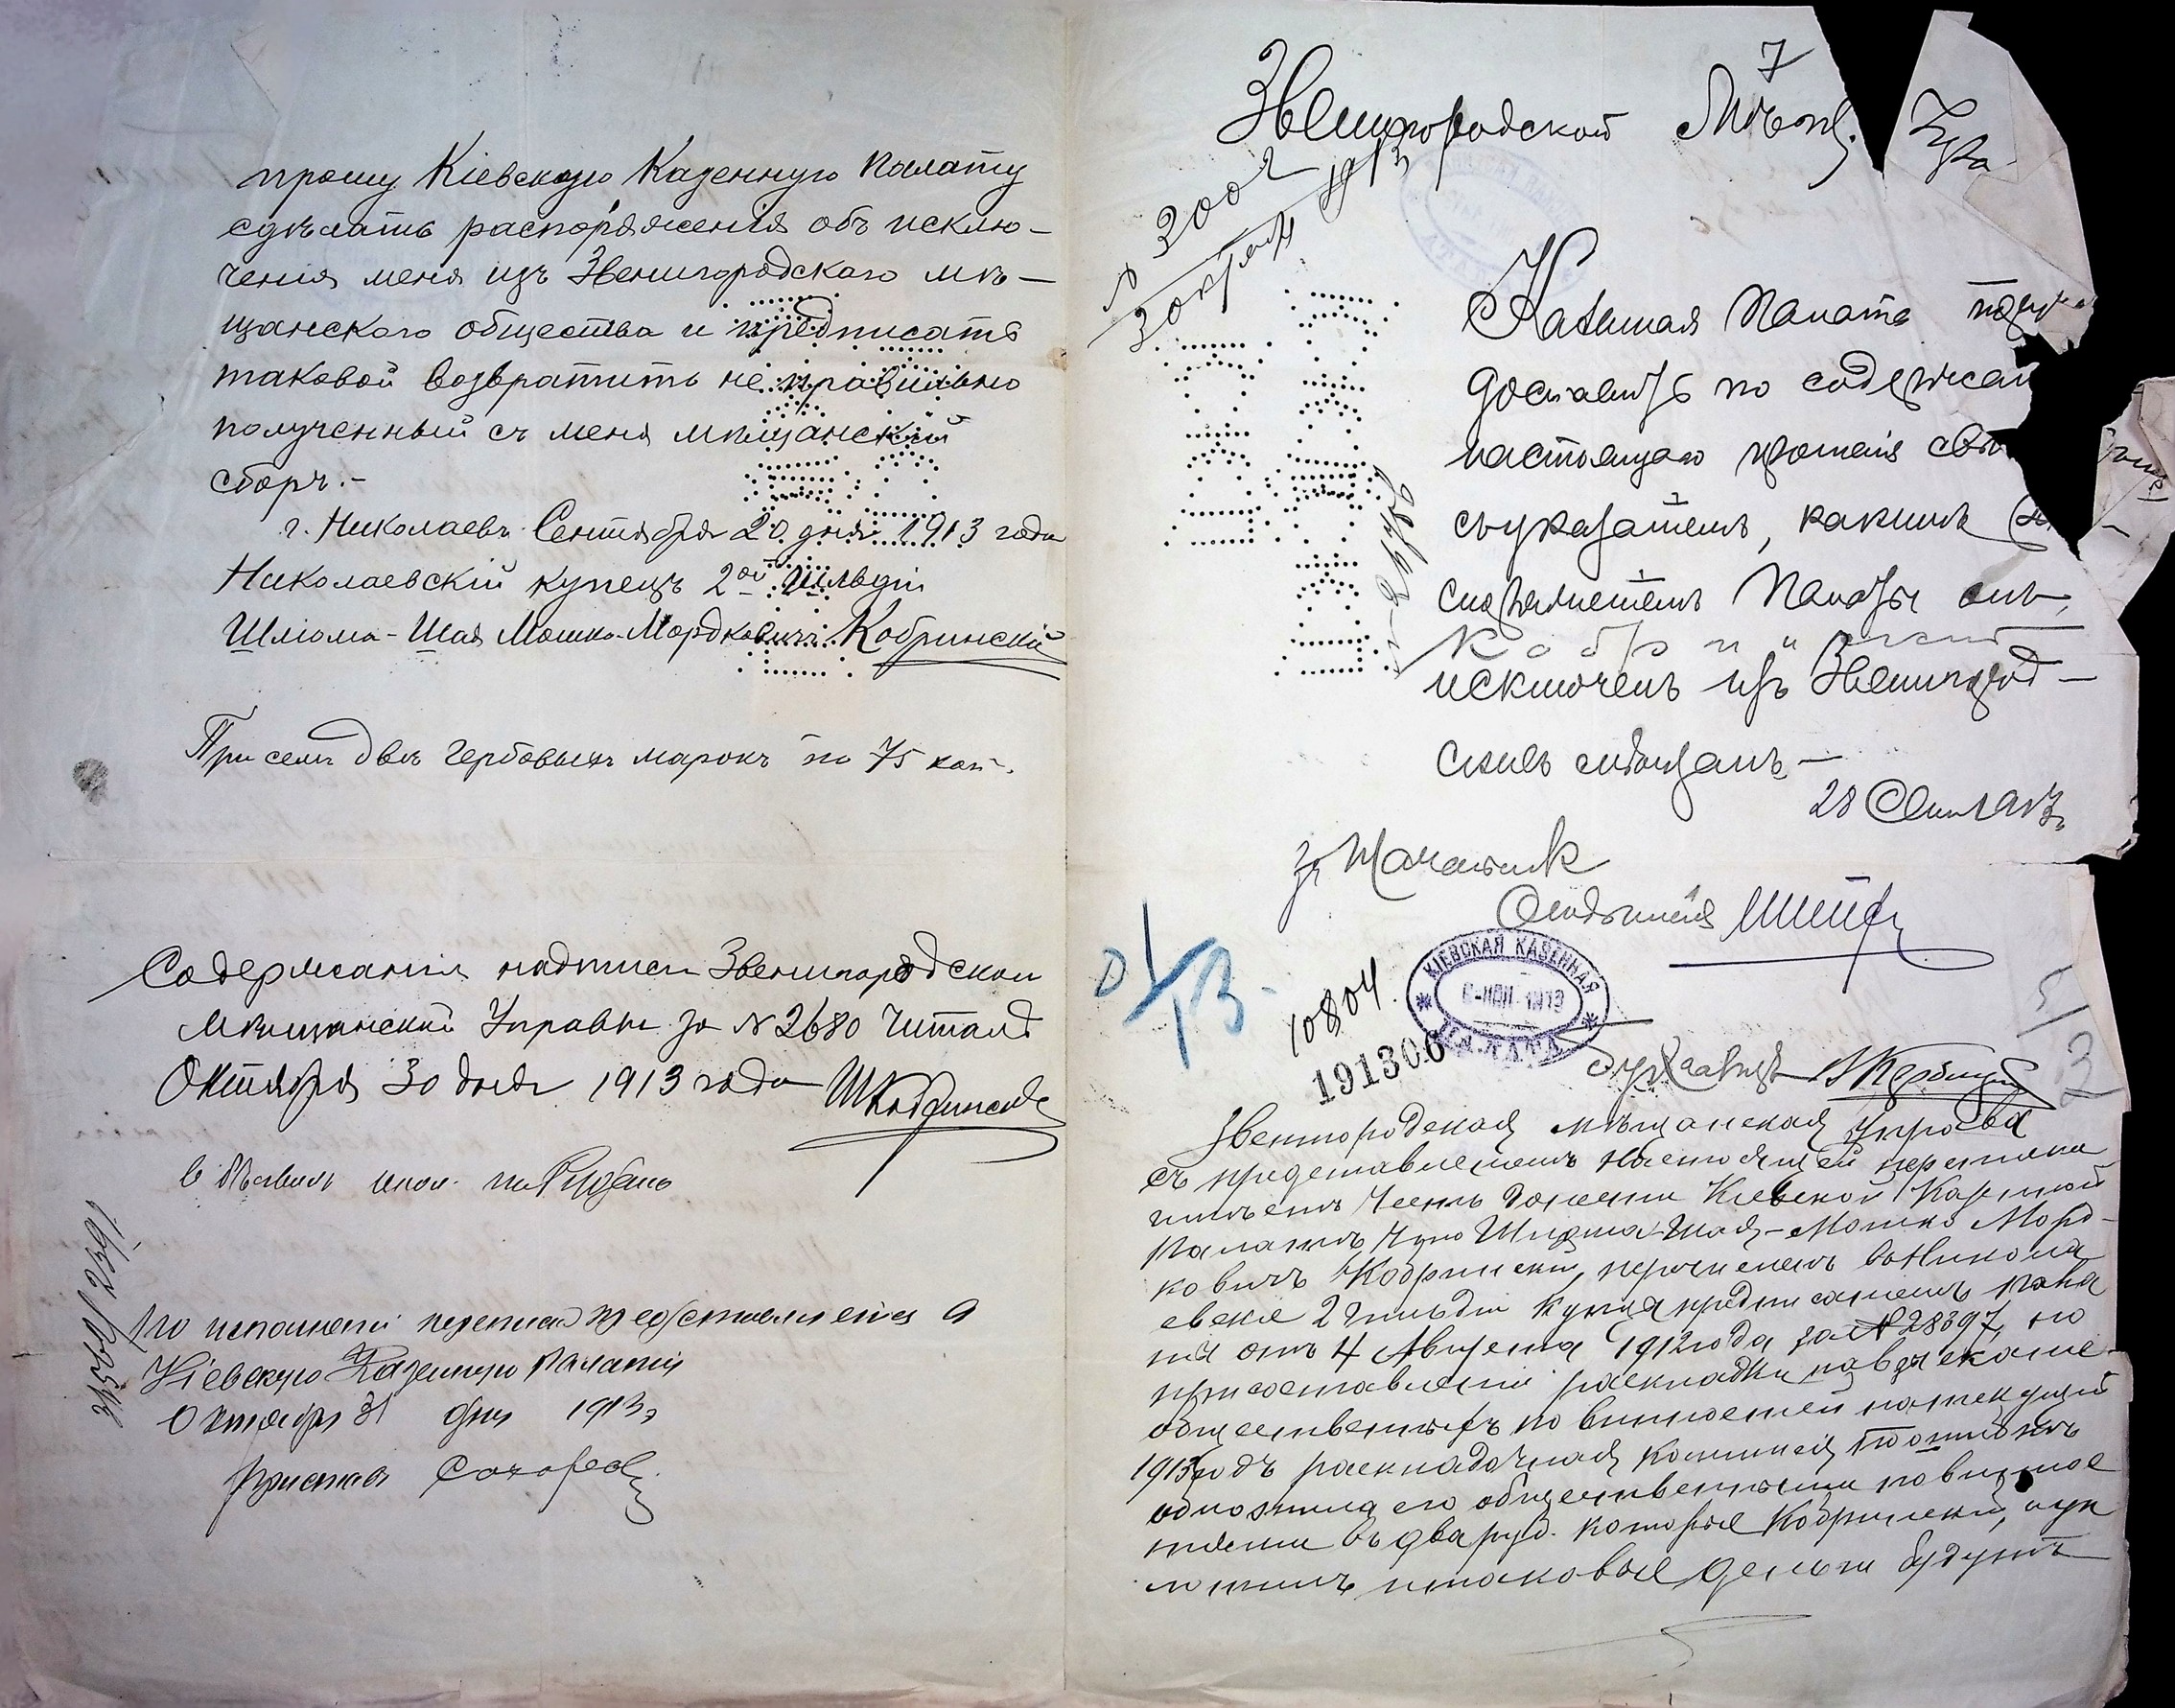 прошу Кіевскую Казенную Палату
сдѣлать распоряженія объ исклю-
ченія меня изъ Звенигородскаго мѣ-
щанскаго общества и предписать
таковой возвратить не правильно
полученный съ меня мѣщанскій
сборъ.-
г. Николаевъ Сентября 20 дня 1913 года
Николаевскій купецъ 2ой Гильдіи
Шліома-Шая Мошко-Мордковичъ Кобринскій
При семъ двѣ гербовыхъ марокъ по 75 коп.
Содержаніе надписи Звенигородской
Мѣщанской Управы за № 2680 читалъ
Октября 30 дня 1913 года ШКобринскій
По исполненіи переписка представляется въ
Кіевскую Казенную Палату
Октября 31 дня 1913 г
Приставъ
7
Звенигородской Мѣщ. Упра
№ 3002
30 октяб 1913
Казенная Палата
доставить по содержан
настоящаго
съ указаніемъ, какимъ
Палаты онъ,
Кобринскій
исключенъ изъ Звенигород-
скихъ мѣщанъ-
28 Сент 1913 г.
за Начальник
Отдѣленія
КІЕВСКАЯ КАЗЕННАЯ
1913
ПАЛАТА
10804.
191306
Звенигородская мѣщанская управа
съ представленіемъ настоящей переписки
имѣетъ честь донести Кіевской Казенной
Палатѣ что Шліома-Шая-Мошко Морд-
ковичъ Кобринскій, перечисленъ въ Никола
евскіе 2 гильдіи купца предписаніемъ Пала
ты отъ 4 Августа 1912 года за № 28397, но
при составленіи раскладки
общественныхъ повинностей на текущій
1913 годъ раскладочная комисія
обложила его общественными повинно
стями въ два руб. которые Кобринскій, упла
тилъ и таковые деньги будутъ